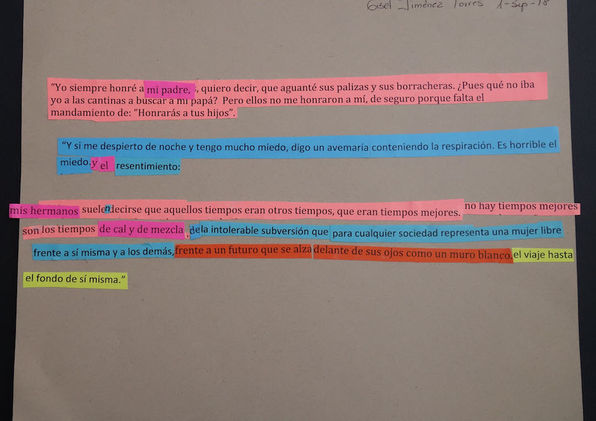 Gisel Jiménez Torres 1-Sep-18
“Yo siempre honré a mi padre, , quiero decir, que aguanté sus palizas y sus borracheras. ¿Pues qué no iba
yo a las cantinas a buscar a mi papá? Pero ellos no me honraron a mí, de seguro porque falta el
mandamiento de: “Honrarás a tus hijos”.
“Y si me despierto de noche y tengo mucho miedo, digo un avemaría conteniendo la respiración. Es horrible el
miedo. y el resentimiento:
mis hermanos suelen decirse que aquellos tiempos eran otros tiempos, que eran tiempos mejores. no hay tiempos mejores
son los tiempos de cal y de mezcla , de la intolerable subversión que para cualquier sociedad representa una mujer libre
frente a sí misma y a los demás, frente a un futuro que se alza delante de sus ojos como un muro blanco. el viaje hasta
el fondo de sí misma.”